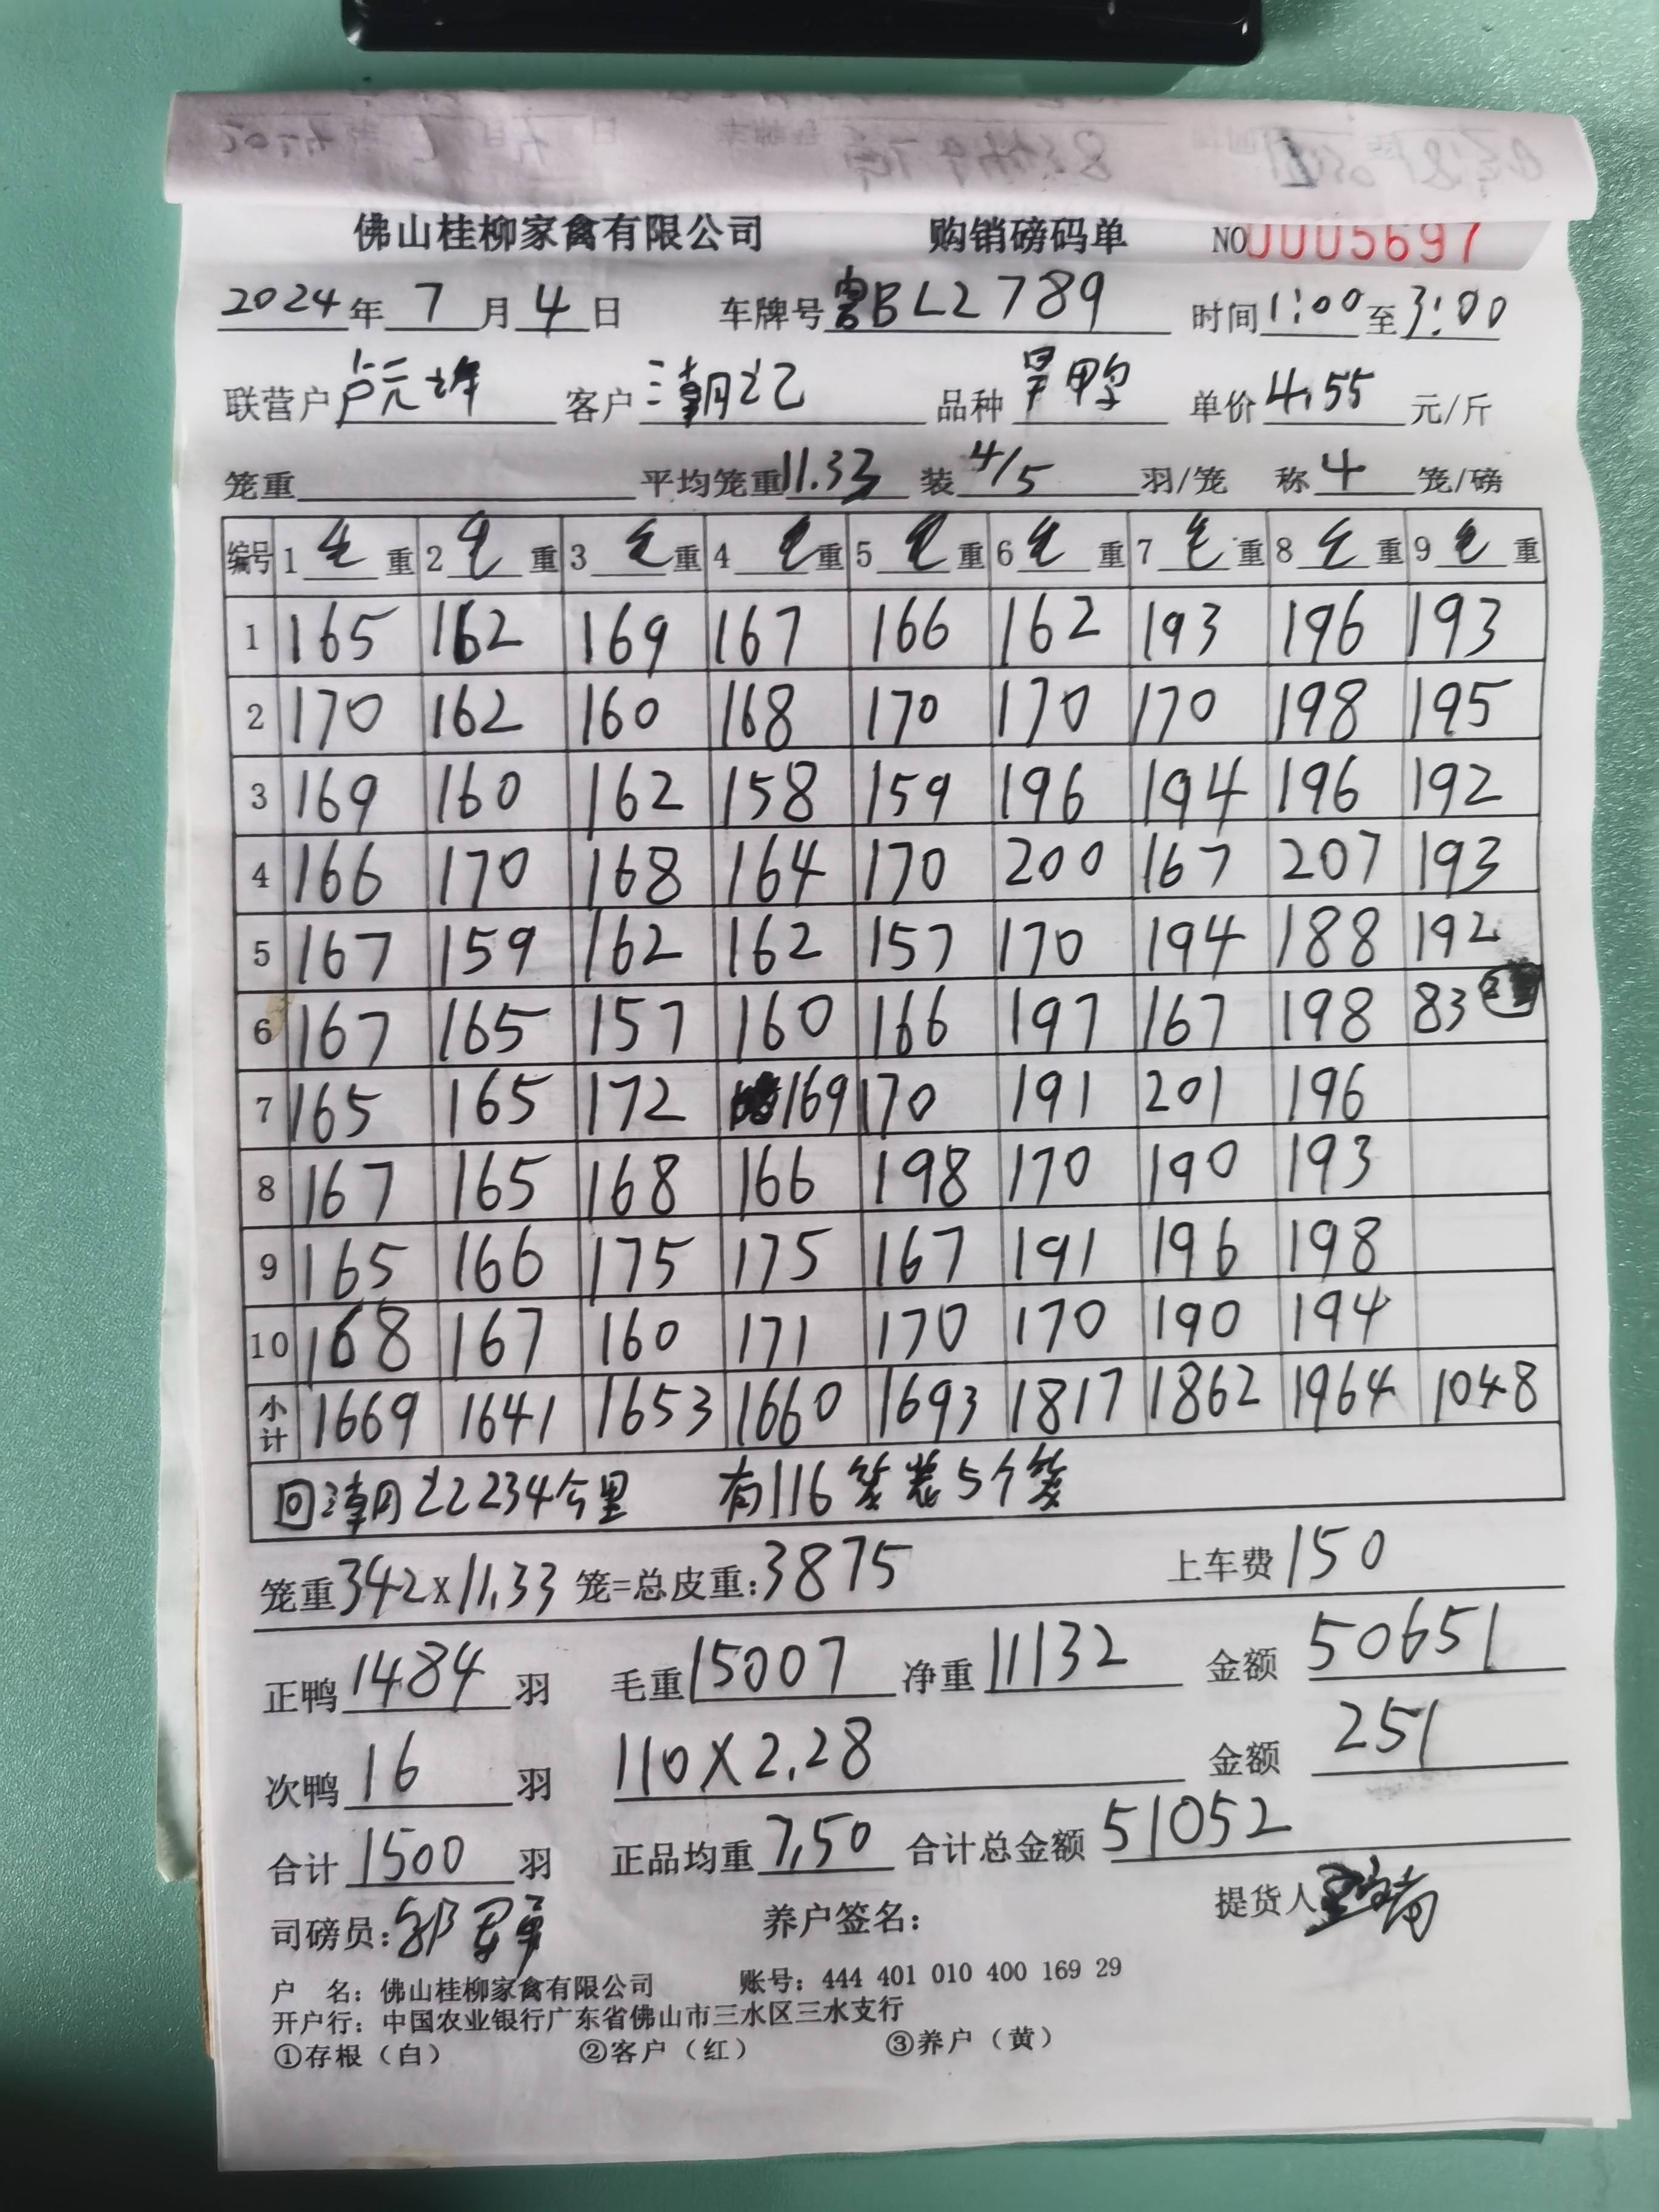 佛山桂柳家禽有限公司 购销磅码单 NO0005697
2024年7月4日 车牌号粤BL2789 时间1:00至3:00
联营户卢元 客户潮记 品种旱鸭 单价4.55元/斤
笼重 平均笼重11.33 装4/5羽/笼 称4笼/磅
编号 1毛重 2毛重 3毛重 4毛重 5毛重 6毛重 7毛重 8毛重 9毛重
1 165 162 169 167 166 162 193 196 193
2 170 162 160 168 170 170 170 198 195
3 169 160 162 158 159 196 194 196 192
4 166 170 168 164 170 200 167 207 193
5 167 159 162 162 157 170 194 188 192
6 167 165 157 160 166 197 167 198 83
7 165 165 172 169 170 191 201 196
8 167 165 168 166 198 170 190 193
9 165 166 175 175 167 191 196 198
10 168 167 160 171 170 170 190 194
小计 1669 1641 1653 1660 1693 1817 1862 1964 1048
回潮记2234公里 有116笼装5个笼
笼重342×11.33笼=总皮重:3875 上车费150
正鸭1484羽 毛重15007 净重11132 金额50651
次鸭16羽 110×2.28 金额251
合计1500羽 正品均重7.50 合计总金额51052
司磅员:邹 养户签名: 提货人
户 名:佛山桂柳家禽有限公司 账号:444 401 010 400 169 29
开户行:中国农业银行广东省佛山市三水区三水支行
①存根(白) ②客户(红) ③养户(黄)